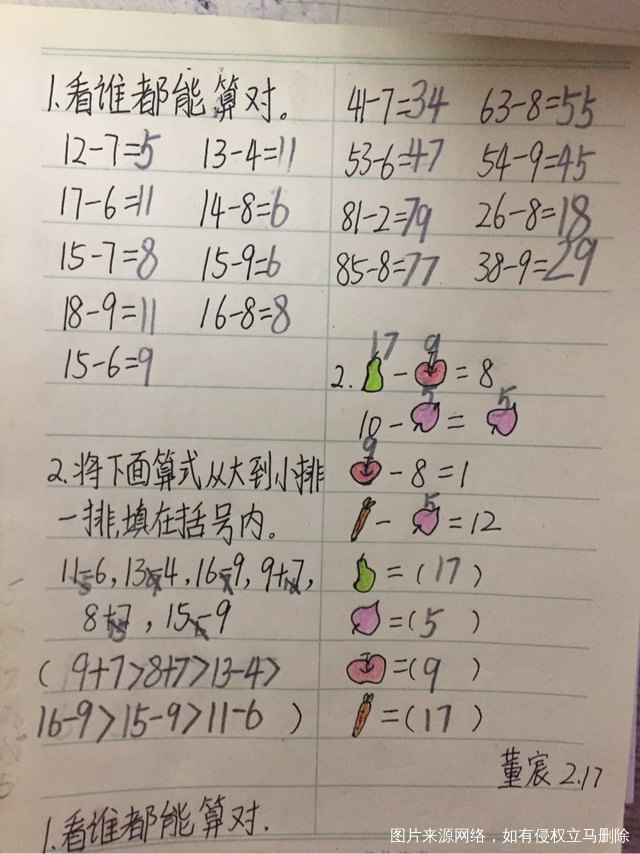 1.看谁都能算对。
12-7=5 13-4=11
17-6=11 14-8=6
15-7=8 15-9=6
18-9=11 16-8=8
15-6=9
2.将下面算式从大到小排
一排,填在括号内。
11-6,13-4,16-9,9+7,
8+7,15-9
(9+7>8+7>13-4>
16-9>15-9>11-6)
1.看谁都能算对.
41-7=34 63-8=55
53-6=47 54-9=45
81-2=79 26-8=18
85-8=77 38-9=29
17 9
2. - =8
5 5
10- =
9
-8=1
5
- =12
=(17)
=(5)
=(9)
=(17)
董宸 2.17
图片来源网络，如有侵权立马删除